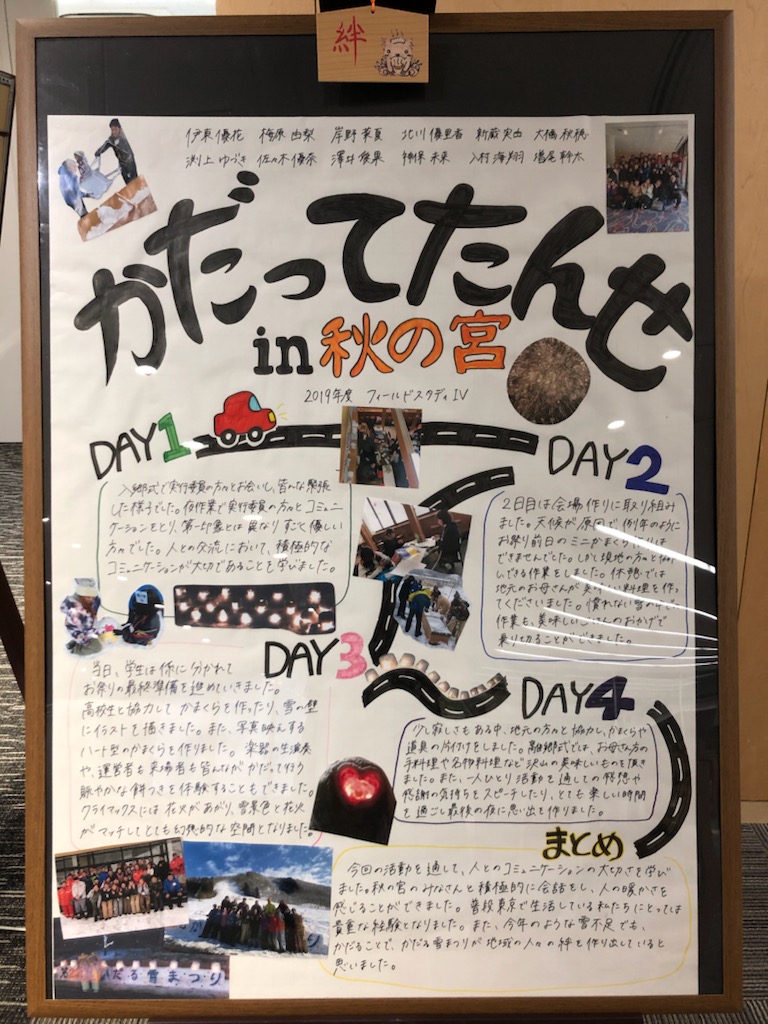 絆
伊東優花 梅原由梨 岸野茉夏 北川優里香 新蔵実由 大橋秋穂
渕上ゆづき 佐々木優奈 澤井俊果 神保未来 入村海翔 増尾幹太
かだってたんせ
in 秋の宮
2019年度 フィールドスタディ IV
DAY1
入郷式で実行委員の方々とお会いし、皆んな緊張
した様子でした。夜作業で実行委員の方々とコミュニ
ケーションをとり、第一印象とは異なりすごく優しい
方々でした。人との交流において、積極的な
コミュニケーションが大切であることを学びました。
DAY2
2日目は会場作りに取り組み
ました。天候が原因で例年のように
お祭り前日のミニかまくら作りは
できませんでした。しかし現地の方々と
できる作業をしました。休憩では
地元のお母さんが美味しい料理を作っ
てくださいました。慣れない雪の
作業も、美味しいごはんのおかげで
乗り切ることができました。
DAY3
当日、学生は係に分かれて
お祭りの最終準備を進めていきました。
高校生と協力して かまくらを作ったり、雪の壁
にイラストを描きました。また、写真映えする
ハート型のかまくらを作りました。楽器の生演奏
や、運営者も来場者も皆んなが かだって行う
賑やかな餅つきを体験することもできました。
クライマックスには 花火があがり、雪景色と花火
がマッチしてとても幻想的な空間となりました。
DAY4
少し寂しさもある中、地元の方々と協力し、かまくらや
道具の片付けをしました。離郷式では、お母さん方の
手料理や名物料理など沢山の美味しいものを頂き
ました。また、一人ひとり活動を通しての感想や
感謝の気持ちをスピーチしたり、とても楽しい時間
を過ごし最後の夜に思い出を作りました。
まとめ
今回の活動を通して、人とのコミュニケーションの大切さを学び
ました。秋の宮のみなさんと積極的に会話をし、人の暖かさを
感じることができました。普段東京で生活している私たちにとっては
貴重な経験となりました。また、今年のような雪不足でも、
かだることで、かだる雪まつりが地域の人々の絆を作り出していると
思いました。
だる雪まつり